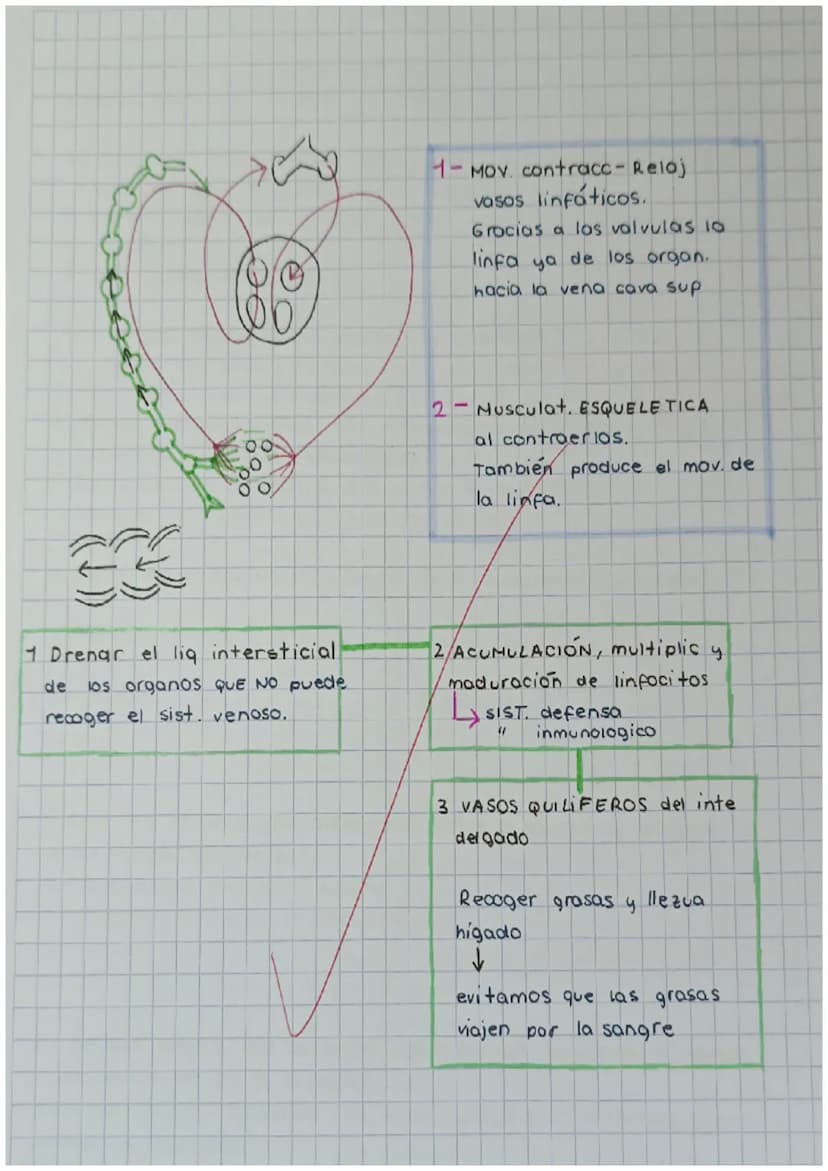 1- MOV. contracc- Reloj
vasos linfáticos.
Grocias a los valvulas la
linfa ya de los organ.
hacia la vena cava sup
2- Musculat. ESQUELETICA
al contraerlos.
También produce el mov. de
la linfa.
1 Drenar el liq intersticial
de los organos QUE NO puede
recoger el sist. venoso.
2 ACUMULACIÓN, multiplic y
maduración de linfocitos
↳ SIST. defensa
" inmunologico
3 VASOS QUILÍFEROS del inte
delgado
Recoger grasas y llezva
hígado
↓
evitamos que las grasas
viajen por la sangre